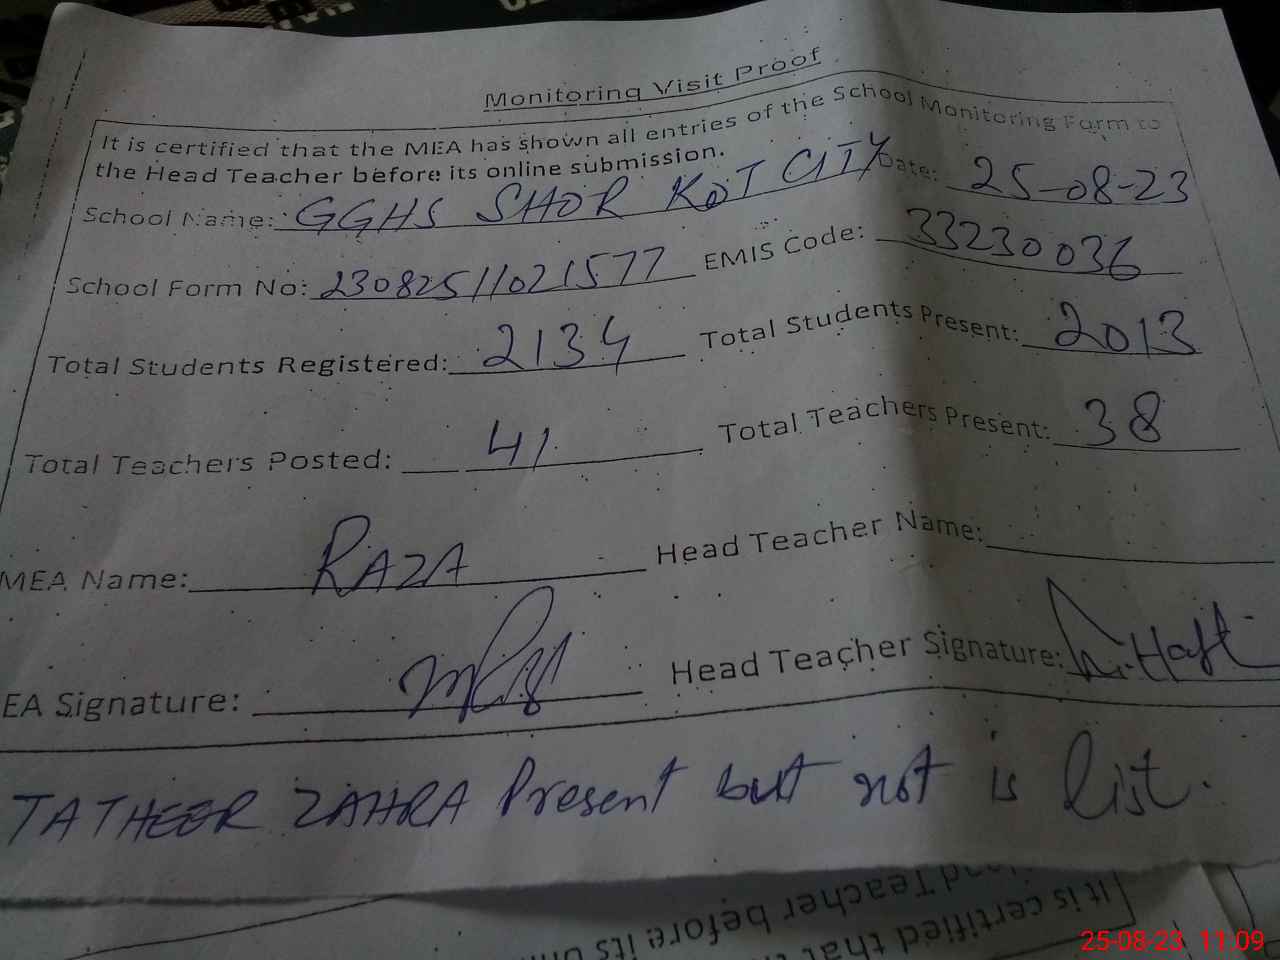 Monitoring Visit Proof
It is certified that the MEA has shown all entries of the School Monitoring Form to
the Head Teacher before its online submission.
Date: 25-08-23
School Name: GGHS SHOR KOT CITY
School Form No: 23082511021577 EMIS Code: 33230036
Total Students Registered: 2134 Total Students Present: 2013
Total Teachers Posted: 41 Total Teachers Present: 38
MEA Name: RAZA Head Teacher Name:
EA Signature: Head Teacher Signature:
TATHEER ZAHRA Present but not is list.
It is certified that
Teacher before its
25-08-23 11:09